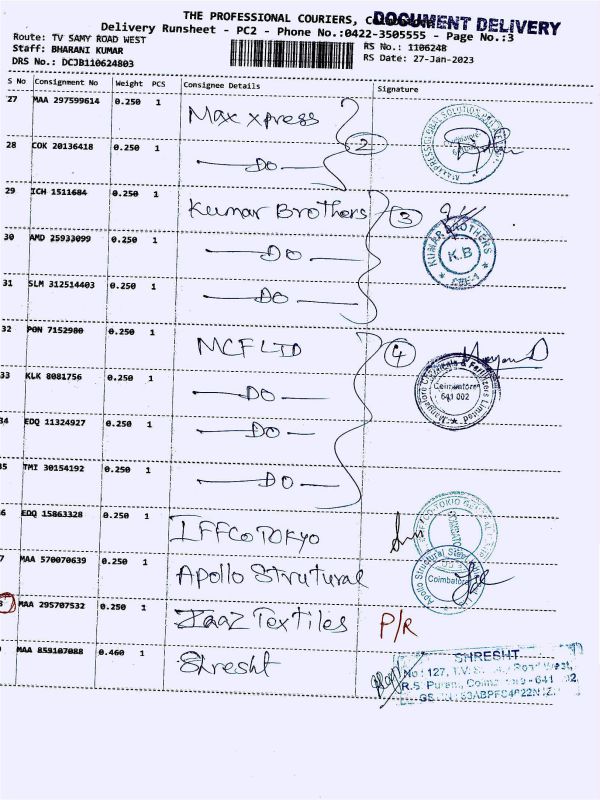 THE PROFESSIONAL COURIERS,
DOCUMENT DELIVERY
Delivery Runsheet - PC2 - Phone No.:0422-3505555 - Page No.:3
Route: TV SAMY ROAD WEST
Staff: BHARANI KUMAR
DRS No.: DCJB110624803
RS No.: 1106248
RS Date: 27-Jan-2023
S No Consignment No Weight PCS Consignee Details Signature
27 MAA 297599614 0.250 1 Max xpress
28 COK 20136418 0.250 1 DO 2
29 ICH 1511684 0.250 1 Kumar Brothers 3
KUMAR BROTHERS
K.B
CBE-1
30 AMD 25933099 0.250 1 DO
31 SLM 312514403 0.250 1 DO
32 PON 7152980 0.250 1 MCF LTD 4
Mangalore Chemicals & Fertilizers Limited
Coimbatore
641 002
33 KLK 8081756 0.250 1 DO
34 EDQ 11324927 0.250 1 DO
35 TMI 30154192 0.250 1 DO
6 EDQ 15863328 0.250 1 IFFCO TOKYO
7 MAA 570070639 0.250 1 Apollo Strutural
Apollo Structural Steel
Coimbatore
8 MAA 295707532 0.250 1 Zaaz Textiles P/R
MAA 859107088 0.460 1 Shresht
SHRESHT
No : 127, T.V. Road West,
R.S. Puram, Coimbatore - 641